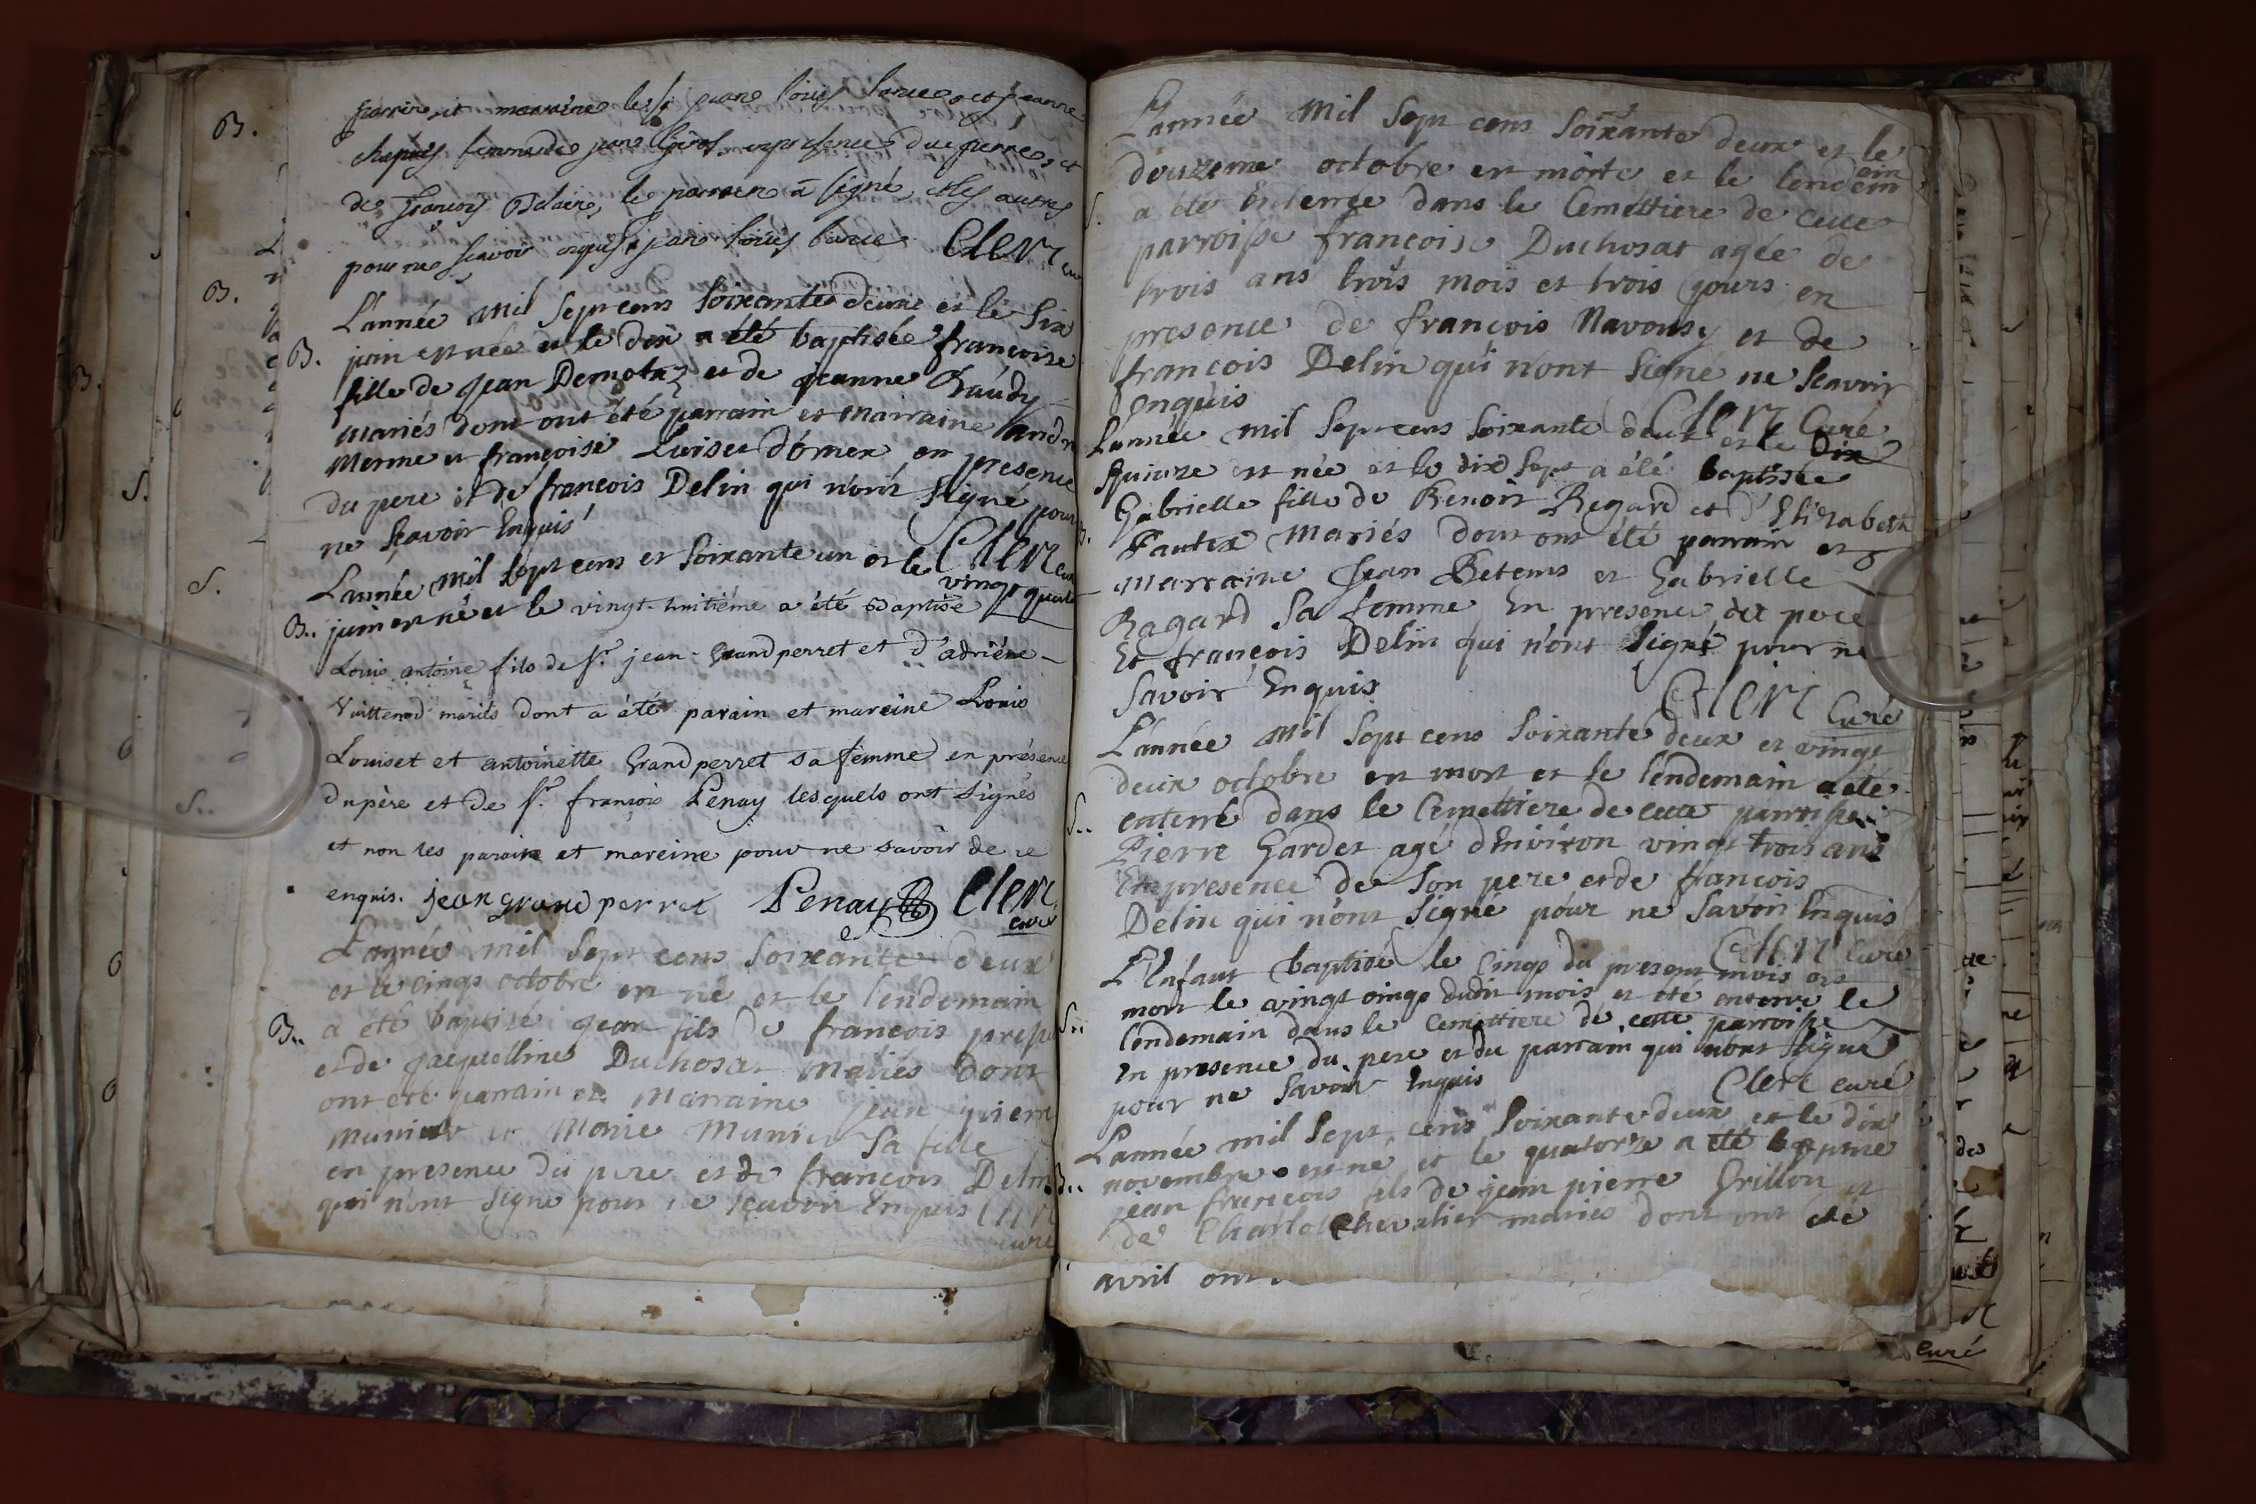 B.
parrein, et marreine le sr jean loüis barue, et jeanne
chapuis femme de jean en presence du pierre, et
de françois Belaire, le parrein a signé, et les autres
pour ne scavoir enquis, jean loüis barue Clerc curé
L'année mil sept cens soixante deux et le six
B. juin est née et le dix a été baptisée françoise
fille de jean Demolaz et de jeanne Gaudy
mariés dont ont été parrain et mairraine andre
Merme et françoise Luiset d'omex en presence
du pere et de françois Delin qui n'ont signe pour
ne scavoir Enquis Clerc curé
L'année mil sept cens et soixante un et le vingt quatre
B.. juin est né et le vingt-huitiéme a été Baptisé
Louis antoine fils de sr. jean Grandperret et d'adriéne
Vuittenod mariés dont a été parain et mareine Louis
Louiset et antoinette Grandperret sa femme en présence
du père et de sr. françois Penay lesquels ont signés
et non les parain et mareine pour ne savoir de ce
enquis. jean grand perret Penay Clerc
curé
L'année mil sept cens soixante deux
et le cinqs octobre est né et le lendemain
B.. a été baptisé jean fils de françois
et de jacquelline Duchosat mariés dont
ont été parrain et Marraine jean pierre
Munier et Marie Munier sa fille
en presence du pere et de françois Delin
qui n'ont signe pour ne scavoir Enquis Clerc
curé
L'année mil sept cens soixante deux et le
douzeme octobre est morte et le lendemain
S. a été Enterrée dans le Cemettiere de cette
parroisse françoise Duchosat agée de
trois ans trois mois et trois jours en
presence de françois Navousy et de
françois Delin qui n'ont signé ne scavoir
Enquis Clerc Curé
L'année mil sept cens soixante deux et le dix
quinze est née et le dix sept a été baptisée
B. Gabrielle fille de Benoit Regard et d'Elizabeth
Fautex Mariés dont ont été parrain et
marraine Jean Betems et Gabrielle
Ragard sa femme En presence du pere
Et françois Delin qui n'ont signé pour ne
savoir Enquis Clerc Curé
L'année mil sept cens soixante deux et vingt
deux octobre est mort et le lendemain a été
S.. enterré dans le Cemettiere de cette parroisse
Pierre Gardet agé d'Environ vingt trois ans
En presence de son pere et de françois
Delin qui n'ont signe pour ne savoir Enquis
Clerc Curé
L'Enfant baptisé le cinqs du present mois est
mort le vingt cinqs dudit mois et été enterré le
S.. lendemain dans le Cemettiere de cette parroisse
En presence du pere et du parrain qui n'ont signé
pour ne savoir Enquis Clerc curé
L'année mil sept cens soixante deux et le dix
B.. novembre est né et le quatorze a été baptisé
jean françois fils de jean pierre Grillon et
de Charlote Chevalier mariés dont ont été
avril ont
curé